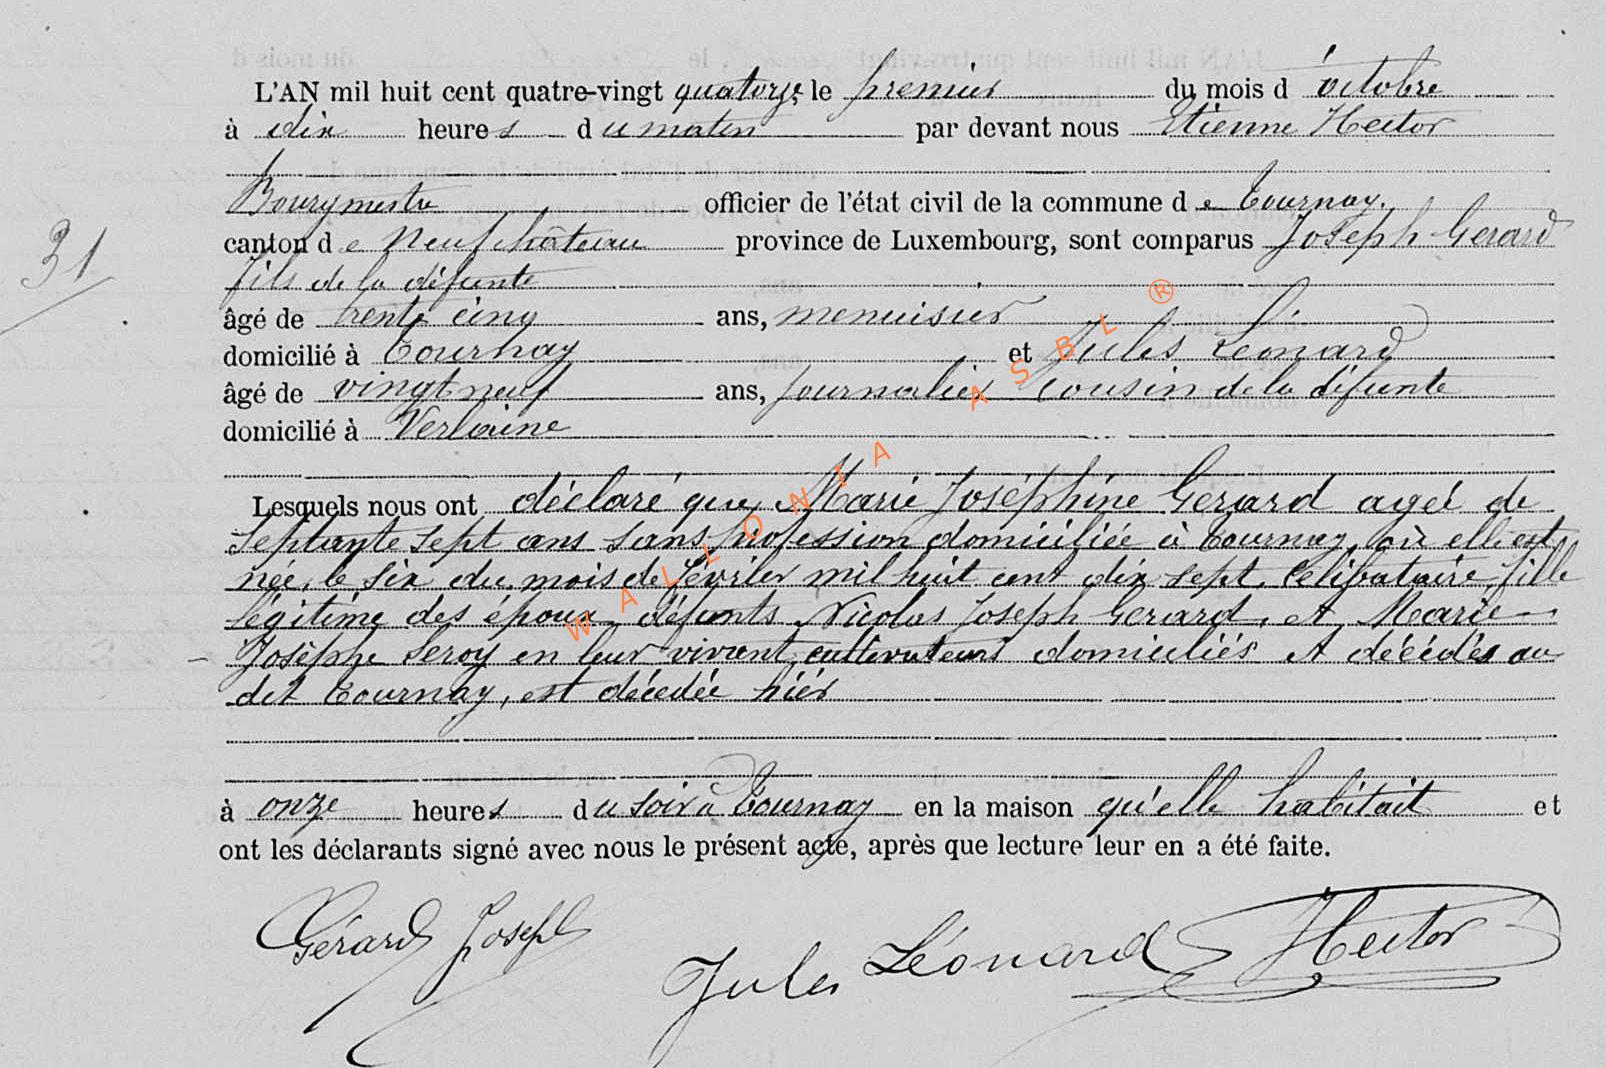 L'AN mil huit cent quatre-vingt quatorze le premier du mois d'octobre
à dix heures du matin par devant nous Etienne Hector
Bourgmestre officier de l'état civil de la commune de Tournay.
31
canton de Neufchâteau province de Luxembourg, sont comparus Joseph Gerard
fils de la défunte
âgé de trente cinq ans, menuisier
domicilié à Tournay et Jules Léonard
âgé de vingt neuf ans, journalier cousin de la défunte
domicilié à Verlaine
Lesquels nous ont déclaré que Marie Joséphine Gerard ageé de
septante sept ans sans profession domiciliée à Tournay où elle est
née, le six du mois de février mil huit cent dix sept, célibataire, fille
légitime des époux défunts Nicolas Joseph Gerard, et Marie-
Josèphe Leroy en leur vivant cultivateurs domiciliés et décédés au
dit Tournay, est décedée hiér
à onze heures du soir à Tournay en la maison qu'elle habitait et
ont les déclarants signé avec nous le présent acte, après que lecture leur en a été faite.
Gérard Joseph Jules Léonard Hector
WALLONIA ASBL ®